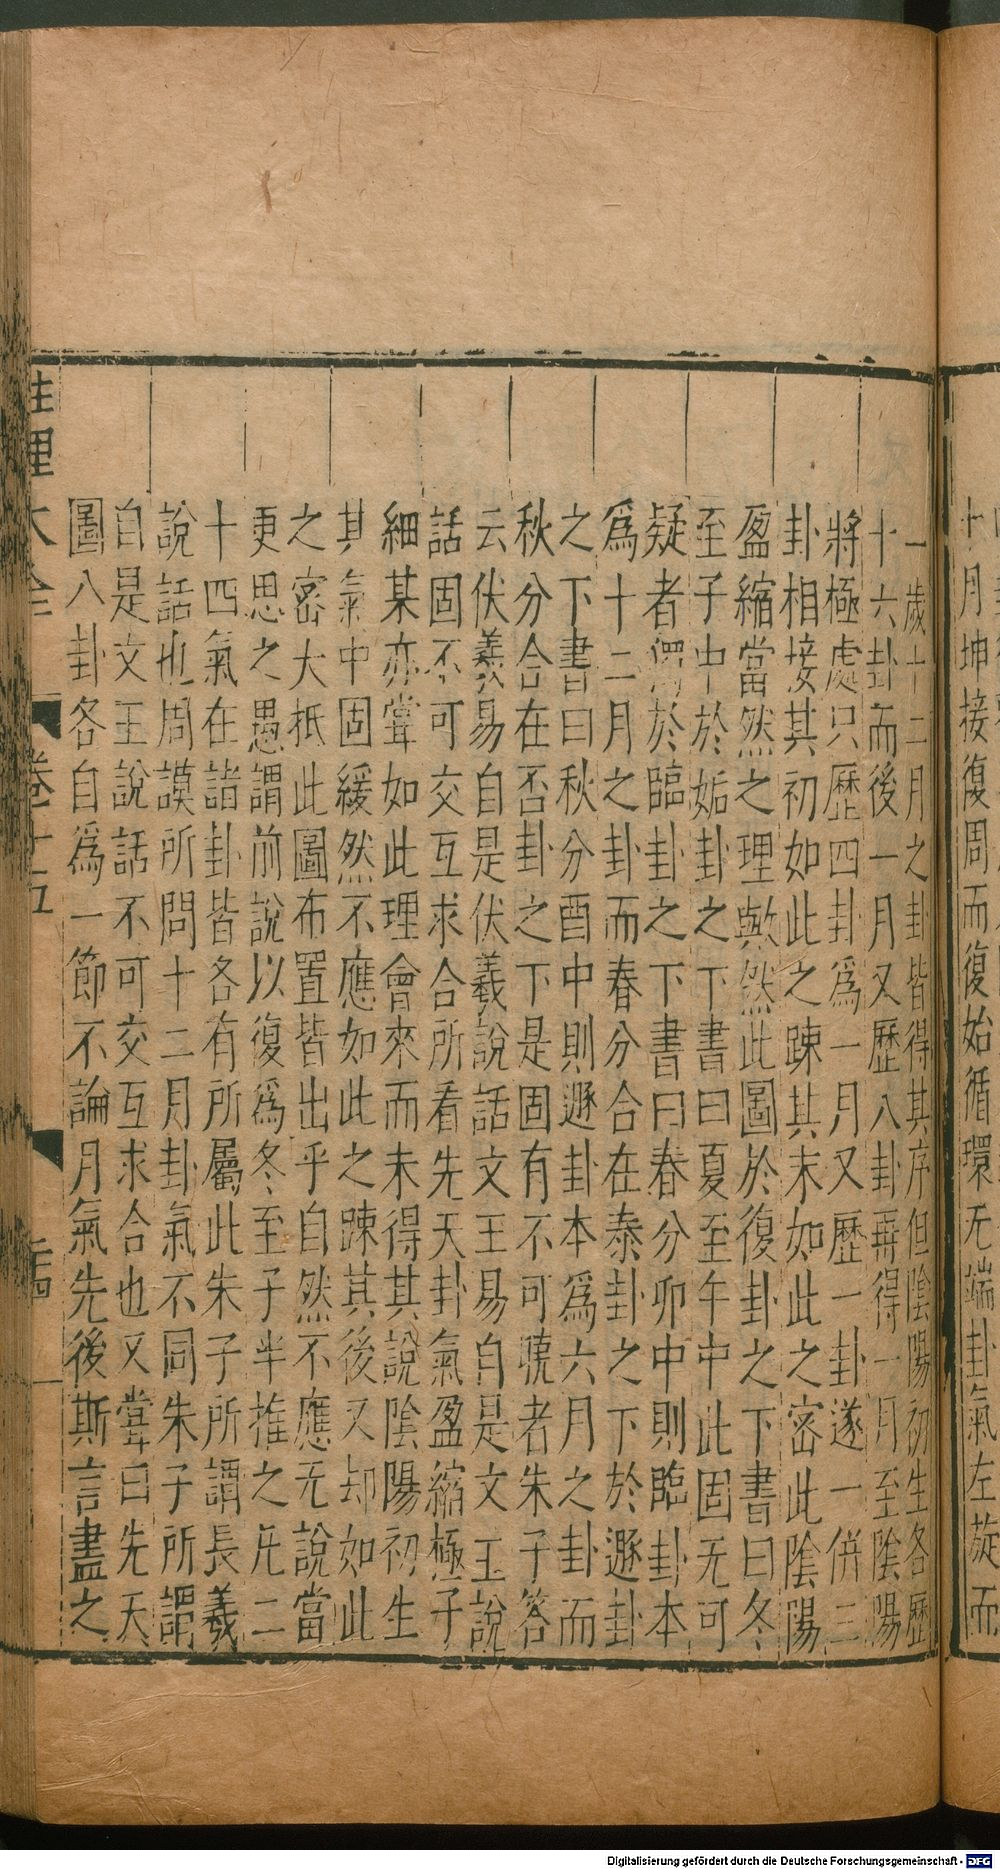 十月坤接復周而復始循環无端卦氣左旋而
一歲十二月之卦皆得其序但陰陽初生各歷
十六卦而後一月又歷八卦再得一月至陰陽
將極處只歷四卦爲一月又歷一卦遂一併三
卦相接其初如此之踈其末如此之密此陰陽
盈縮當然之理歟然此圖於復卦之下書曰冬
至子中於姤卦之下書曰夏至午中此固无可
疑者獨於臨卦之下書曰春分卯中則臨卦本
爲十二月之卦而春分合在泰卦之下於遯卦
之下書曰秋分酉中則遯卦本爲六月之卦而
秋分合在否卦之下是固有不可曉者朱子答
云伏羲易自是伏羲說話文王易自是文王說
話固不可交互求合所看先天卦氣盈縮極子
細某亦嘗如此理會來而未得其說陰陽初生
其氣中固緩然不應如此之踈其後又却如此
之密大抵此圖布置皆出乎自然不應无說當
更思之愚謂前說以復爲冬至子半推之凡二
十四氣在諸卦皆各有所屬此朱子所謂長羲
說話也周謨所問十二月卦氣不同朱子所謂
自是文王說話不可交互求合也又嘗曰先天
圖八卦各自爲一節不論月氣先後斯言盡之
性理大全 卷十五 二十四
Digitalisierung gefördert durch die Deutsche Forschungsgemeinschaft - DFG